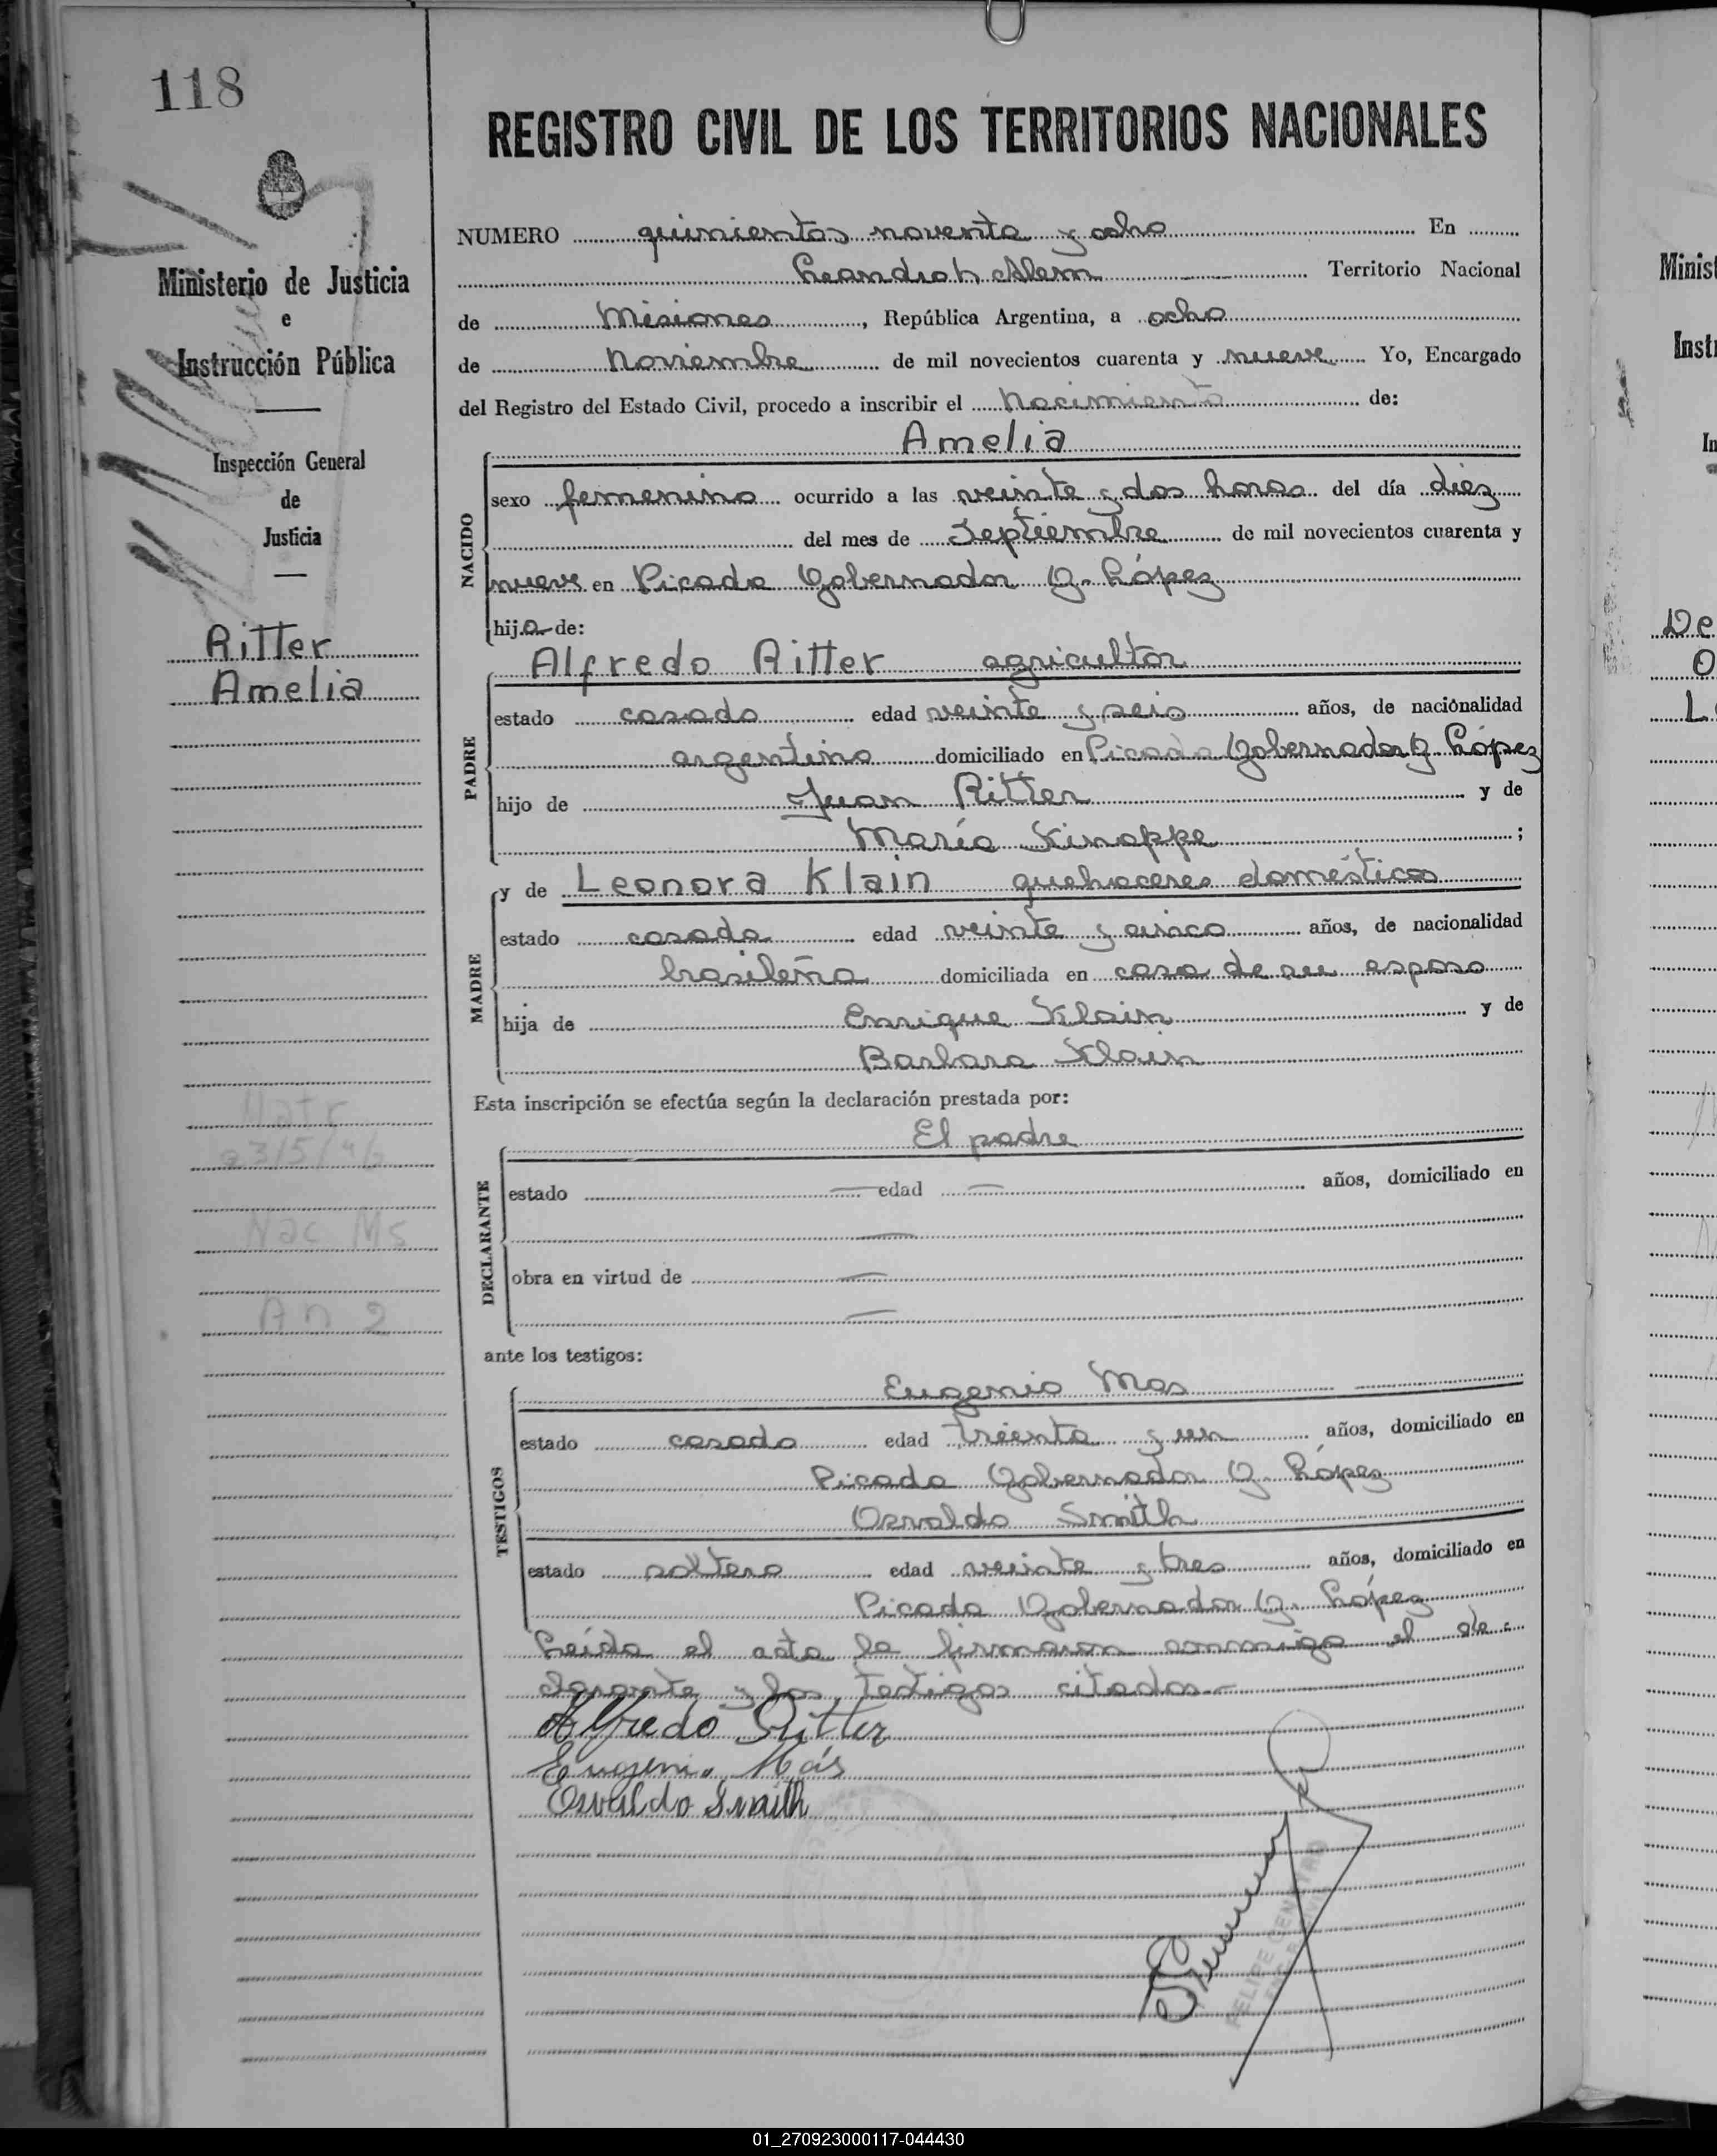 118
REGISTRO CIVIL DE LOS TERRITORIOS NACIONALES
Ministerio de Justicia
e
Instrucción Pública
Inspección General
de
Justicia
Ritter
Amelia
Matr
Nac Ms
An 2
NUMERO quinientos noventa y ocho En
Leandro N. Alem Territorio Nacional
de Misiones, República Argentina, a ocho
de Noviembre de mil novecientos cuarenta y nueve Yo, Encargado
del Registro del Estado Civil, procedo a inscribir el Nacimiento de:
Amelia
NACIDO
sexo femenino ocurrido a las veinte y dos horas del día diez
del mes de Septiembre de mil novecientos cuarenta y
nueve en Picada Gobernador G. López
hija de:
Alfredo Ritter agricultor
PADRE
estado casado edad veinte y seis años, de nacionalidad
argentino domiciliado en Picada Gobernador G. López
hijo de Juan Ritter y de
María Knoppe ;
y de Leonora Klain quehaceres domésticos
MADRE
estado casada edad veinte y cinco años, de nacionalidad
brasileña domiciliada en casa de su esposo
hija de Enrique Klain y de
Barbara Klain
Esta inscripción se efectúa según la declaración prestada por:
El padre
DECLARANTE
estado — edad — años, domiciliado en
—
obra en virtud de —
—
ante los testigos:
Eugenio Mas
TESTIGOS
estado casado edad treinta y un años, domiciliado en
Picada Gobernador G. López
Osvaldo Smith
estado soltero edad veinte y tres años, domiciliado en
Picada Gobernador G. López
Leída el acta la firmaron conmigo el de-
clarante y los testigos citados.-
Alfredo Ritter
Eugenio Más
Osvaldo Smith
01_270923000117-044430